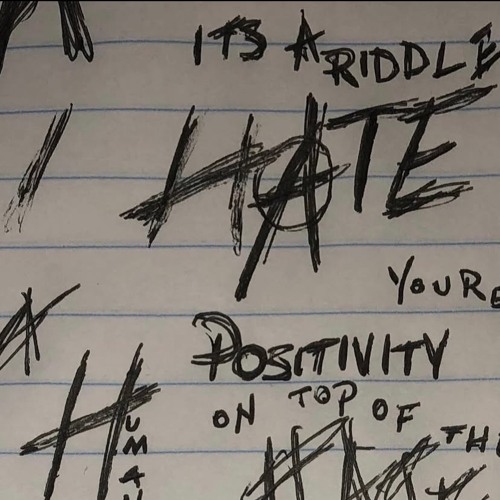 ITS A RIDDLE
I HATE
YOURE
POSITIVITY
ON TOP OF THE
HUMAN